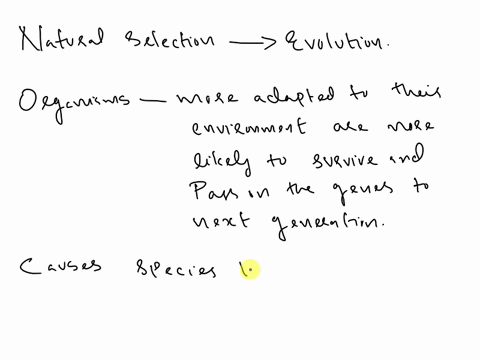 Natural selection → Evolution.
Organisms — more adapted to their
environment are more
likely to survive and
Pass on the genes to
next generation.
Causes species